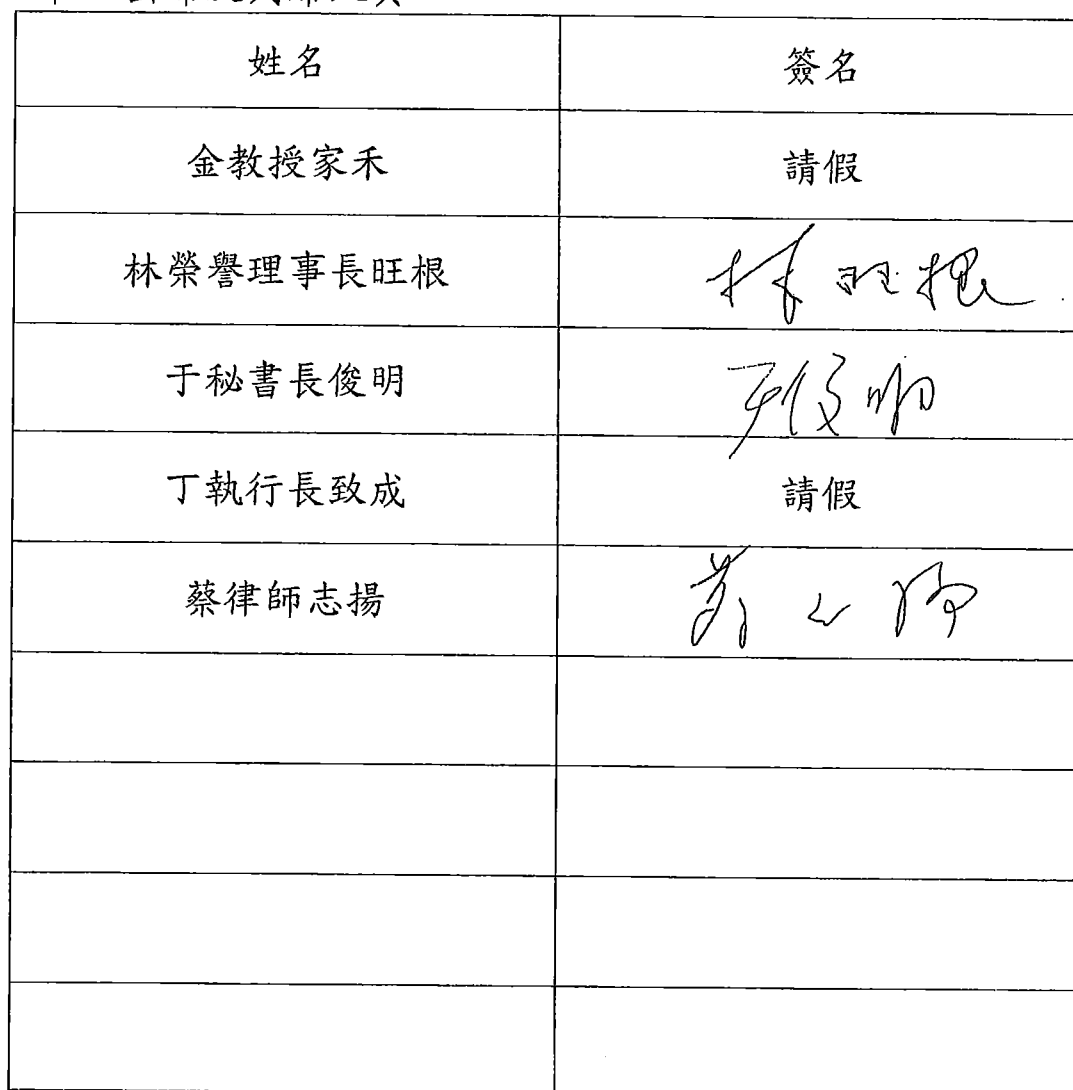 姓名 簽名
金教授家禾 請假
林榮譽理事長旺根 林旺根
于秘書長俊明 于俊明
丁執行長致成 請假
蔡律師志揚 蔡志揚